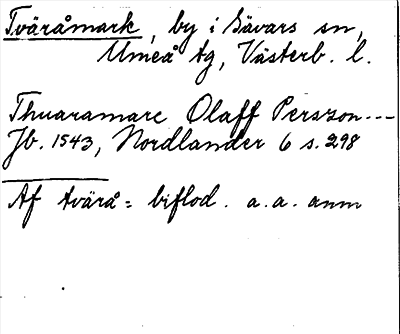 Tväråmark, by i Sävars sn,
Umeå tg, Västerb. l.
Thuaramarc Olaff Perszon---
Jb. 1543, Nordlander 6 s. 298
Af tvärå = biflod. a. a. anm